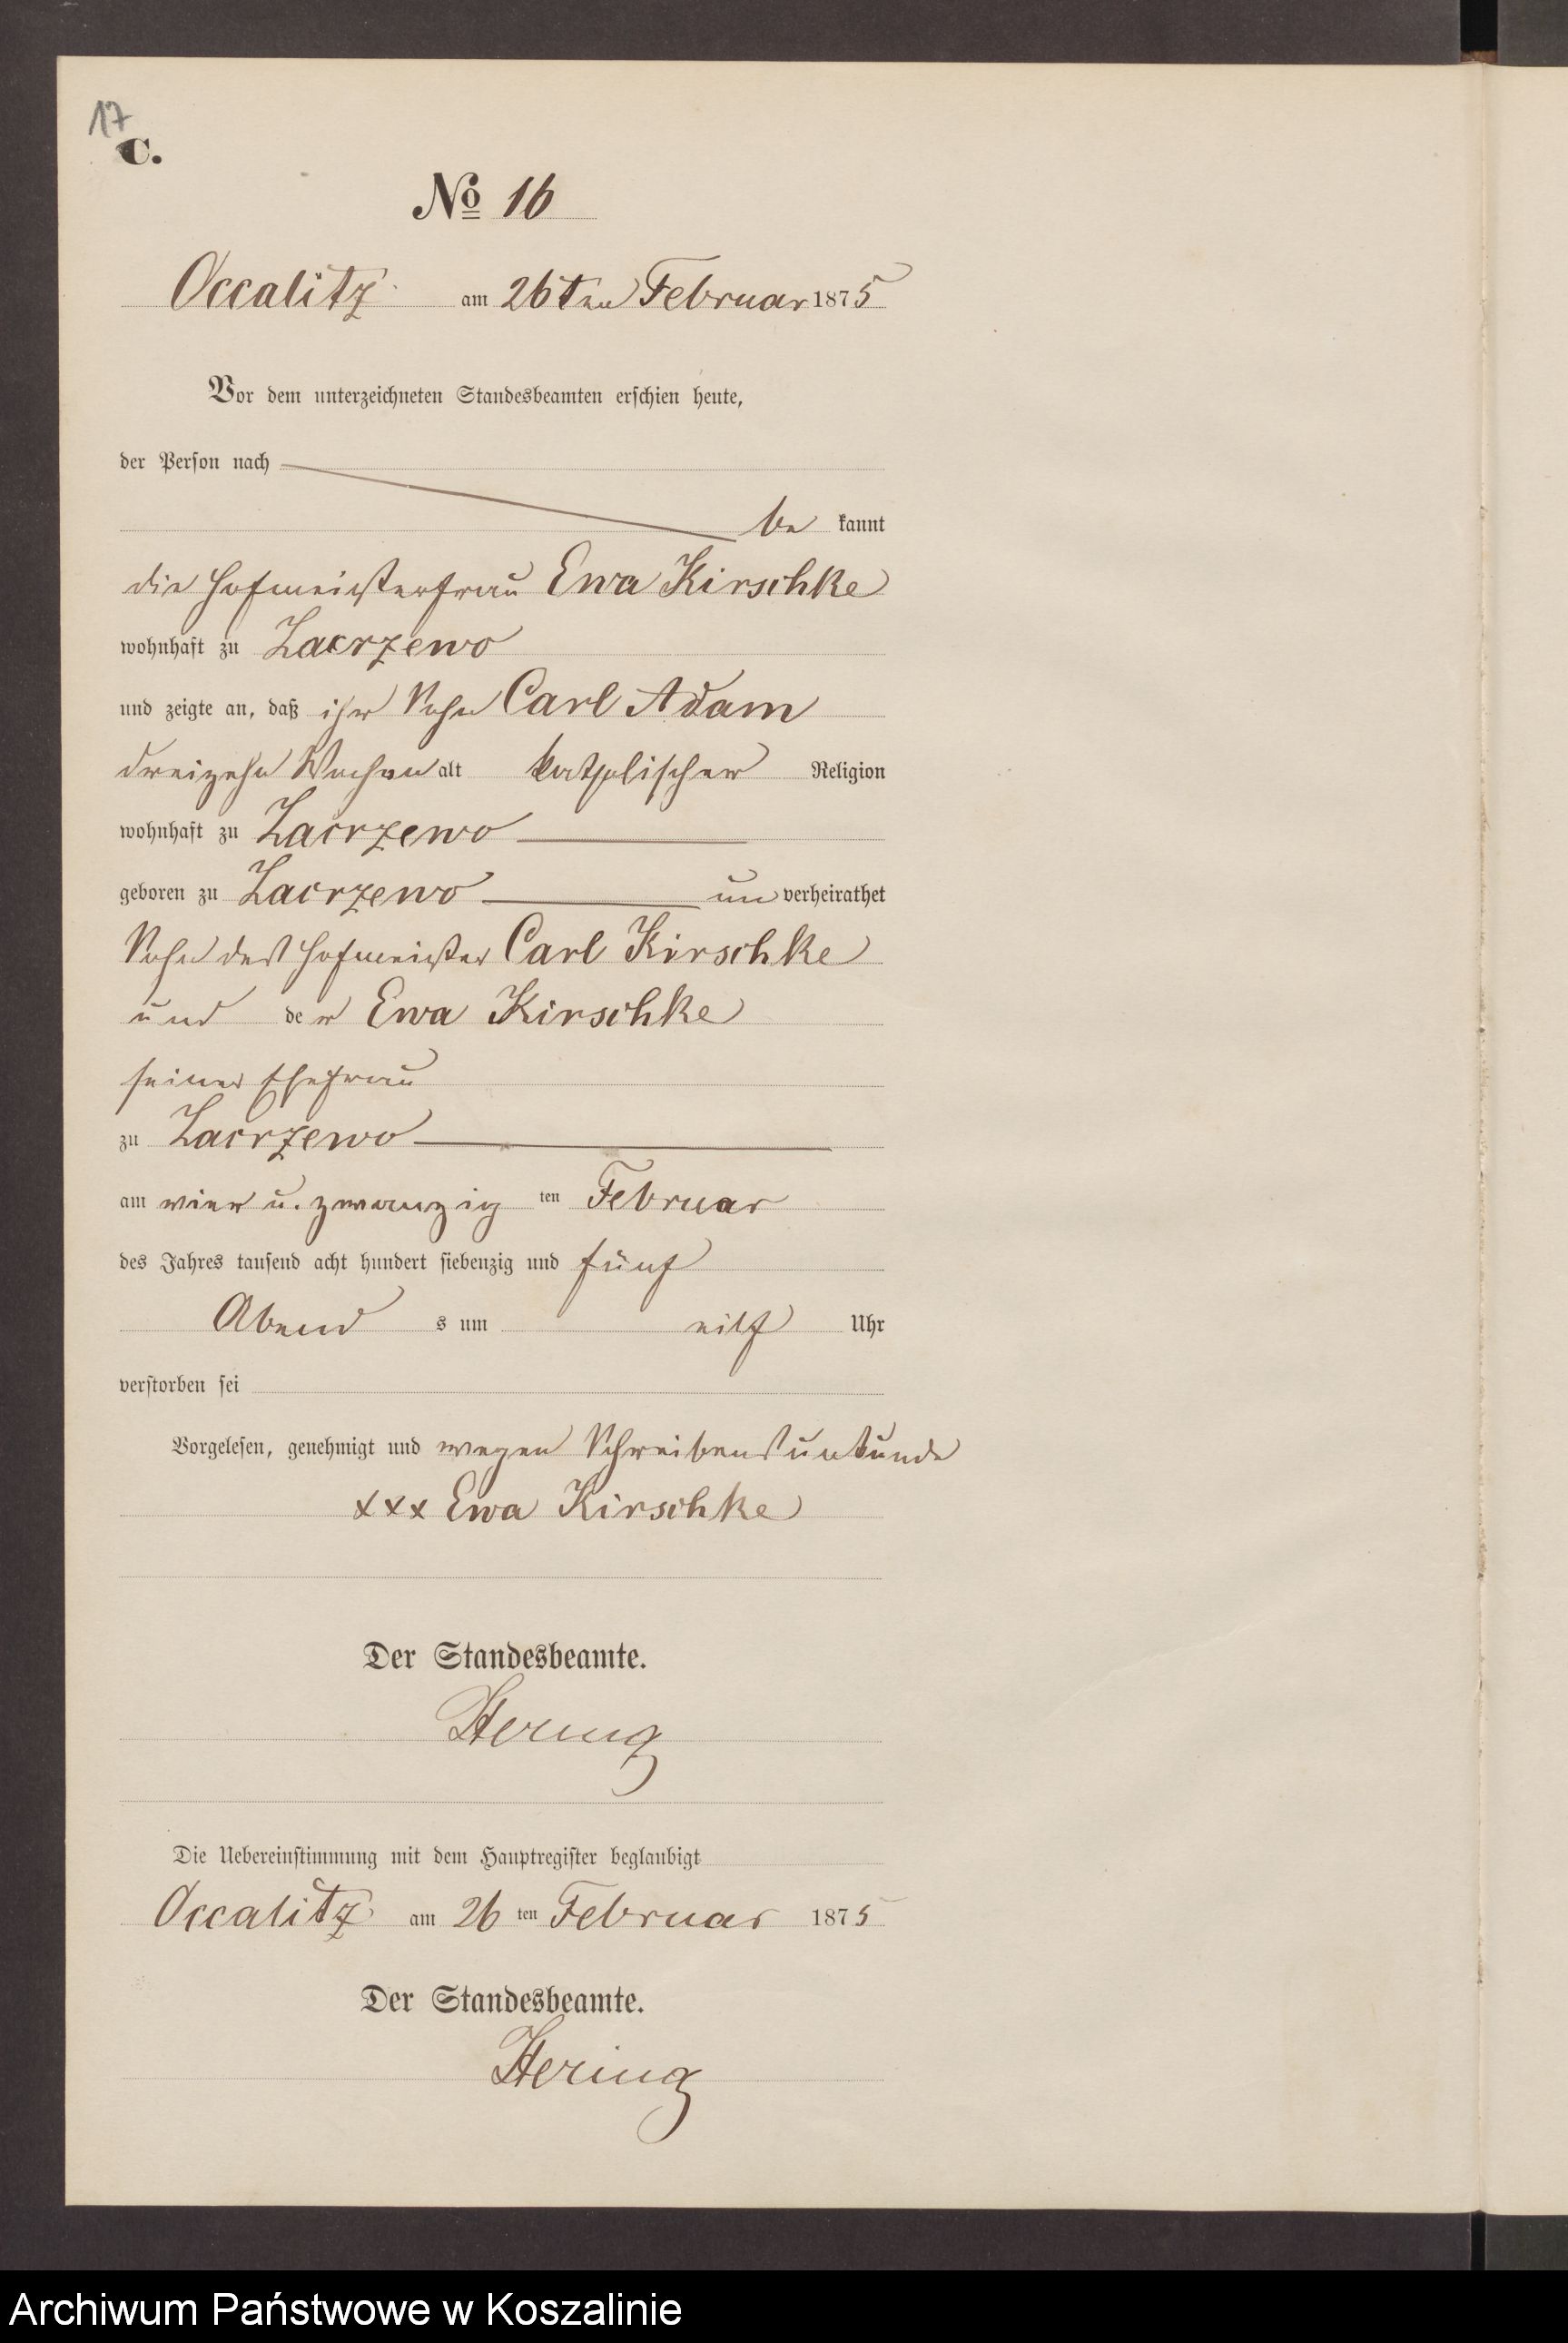 17
C.
No 16
Occalitz am 26ten Februar 1875
Vor dem unterzeichneten Standesbeamten erschien heute,
der Person nach
be kannt
die Hofmeisterfrau Ewa Kirschke
wohnhaft zu Zacrzewo
und zeigte an, daß ihr Sohn Carl Adam
dreizehn Wochen alt katholischer Religion
wohnhaft zu Zacrzewo
geboren zu Zacrzewo un verheirathet
Sohn des Hofmeister Carl Kirschke
und der Ewa Kirschke
seiner Ehefrau
zu Zacrzewo
am vier u. zwanzig ten Februar
des Jahres tausend acht hundert siebenzig und fünf
Abend s um eilf Uhr
verstorben sei
Vorgelesen, genehmigt und wegen Schreibensunkunde
xxx Ewa Kirschke
Der Standesbeamte.
Hering
Die Uebereinstimmung mit dem Hauptregister beglaubigt
Occalitz am 26 ten Februar 1875
Der Standesbeamte.
Hering
Archiwum Państwowe w Koszalinie